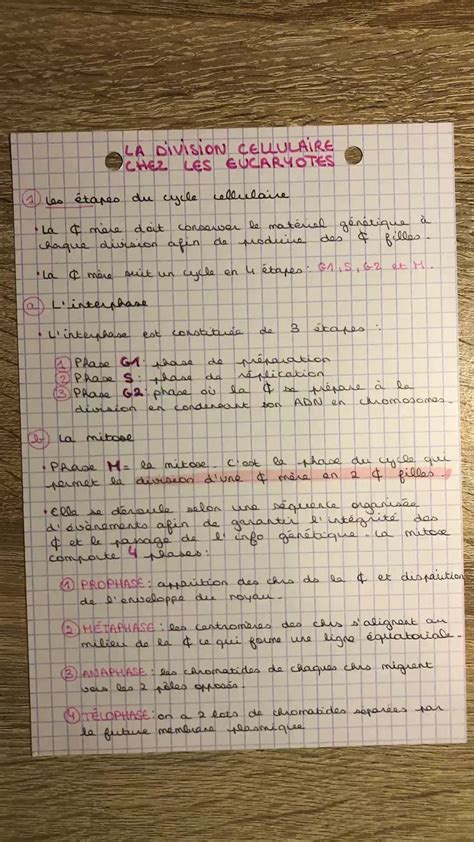 LA DIVISION CELLULAIRE
CHEZ LES EUCARYOTES
① Les étapes du cycle cellulaire
• La ¢ mère doit conserver le matériel génétique à
chaque division afin de produire des ¢ filles.
• La ¢ mère suit un cycle en 4 étapes : G1, S, G2 et M.
ⓐ L'interphase
• L'interphase est constituée de 3 étapes :
① Phase G1 : phase de préparation
② Phase S : phase de réplication
③ Phase G2 : phase où la ¢ se prépare à la
division en condensant son ADN en chromosomes.
ⓑ La mitose
• Phase M = la mitose. C'est la phase du cycle qui
permet la division d'une ¢ mère en 2 ¢ filles.
• Elle se déroule selon une séquence organisée
d'évènements afin de garantir l'intégrité des
¢ et le passage de l'info génétique. La mitose
comporte 4 phases :
① PROPHASE : apparition des chrs ds la ¢ et disparition
de l'enveloppe du noyau.
② MÉTAPHASE : les centromères des chrs s'alignent au
milieu de la ¢ ce qui forme une ligne équatoriale.
③ ANAPHASE : les chromatides de chaques chrs migrent
vers les 2 pôles opposés.
④ TÉLOPHASE : on a 2 lots de chromatides séparées par
la future membrane plasmique